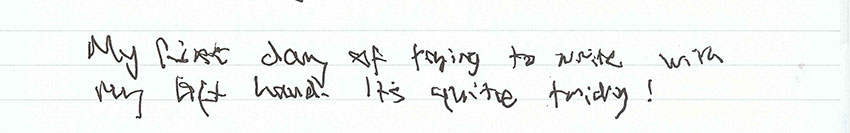 My first day of trying to write with
my left hand. It's quite tricky!